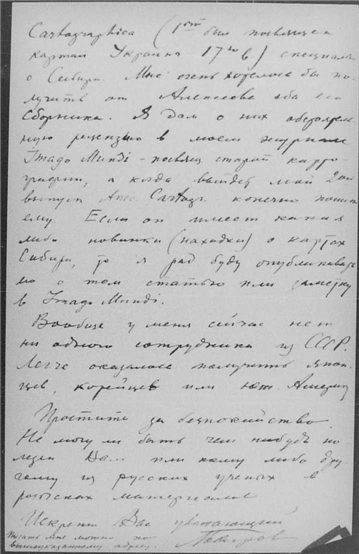 Cartographica (1ый был посвящен
картам Украины 17го в) специально
о Сибири. Мне очень хотелось бы по-
лучить от Алексеева оба его
Сборника. Я дам о них обстоятель-
ную рецензию в моем журнале
Imago Mundi - посвящ старой карто-
графии, а когда выйдет мой 2ой
выпуск Anec. Cartogr. конечно пошлю
ему Если он имеет какия
либо новинки (находки) о картах
Сибири, то я рад буду опубликовать
о том статью или заметку
в Imago Mundi.
Вообще у меня сейчас нет
ни одного сотрудника из СССР.
Легче оказалось получить япон-
цев, корейцев или юж. Америку
Простите за безпокойство.
Не могу ли быть чем нибудь по-
лезен Вам или кому либо дру-
гому из русских ученых в
розысках материалов
Искренно Вас уважающий
Писать мне можно по
вышеуказанному адресу.